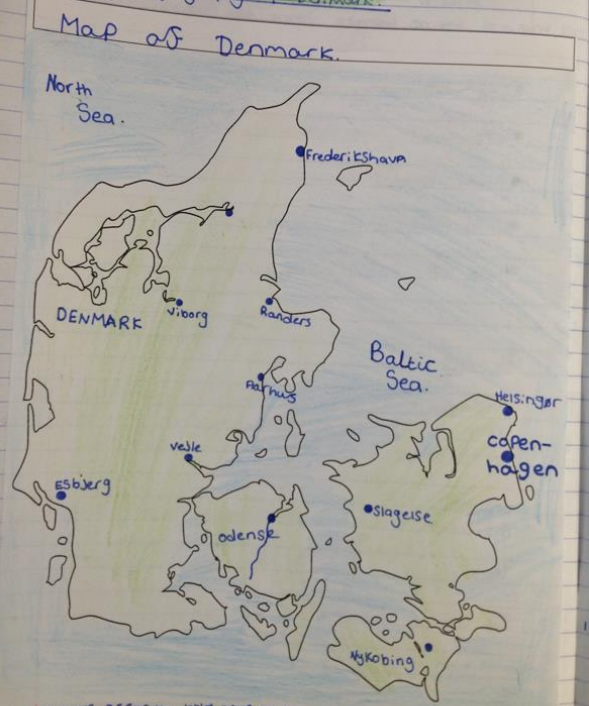 Map of Denmark.
North
Sea.
Frederikshavn
DENMARK
Viborg
Randers
Baltic
Sea.
Aarhus
Helsingør
Copen-
hagen
Vejle
Esbjerg
Slagelse
Odense
Nykobing